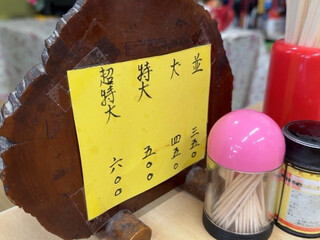 並 三五〇
大 四五〇
特大 五〇〇
超特大 六〇〇